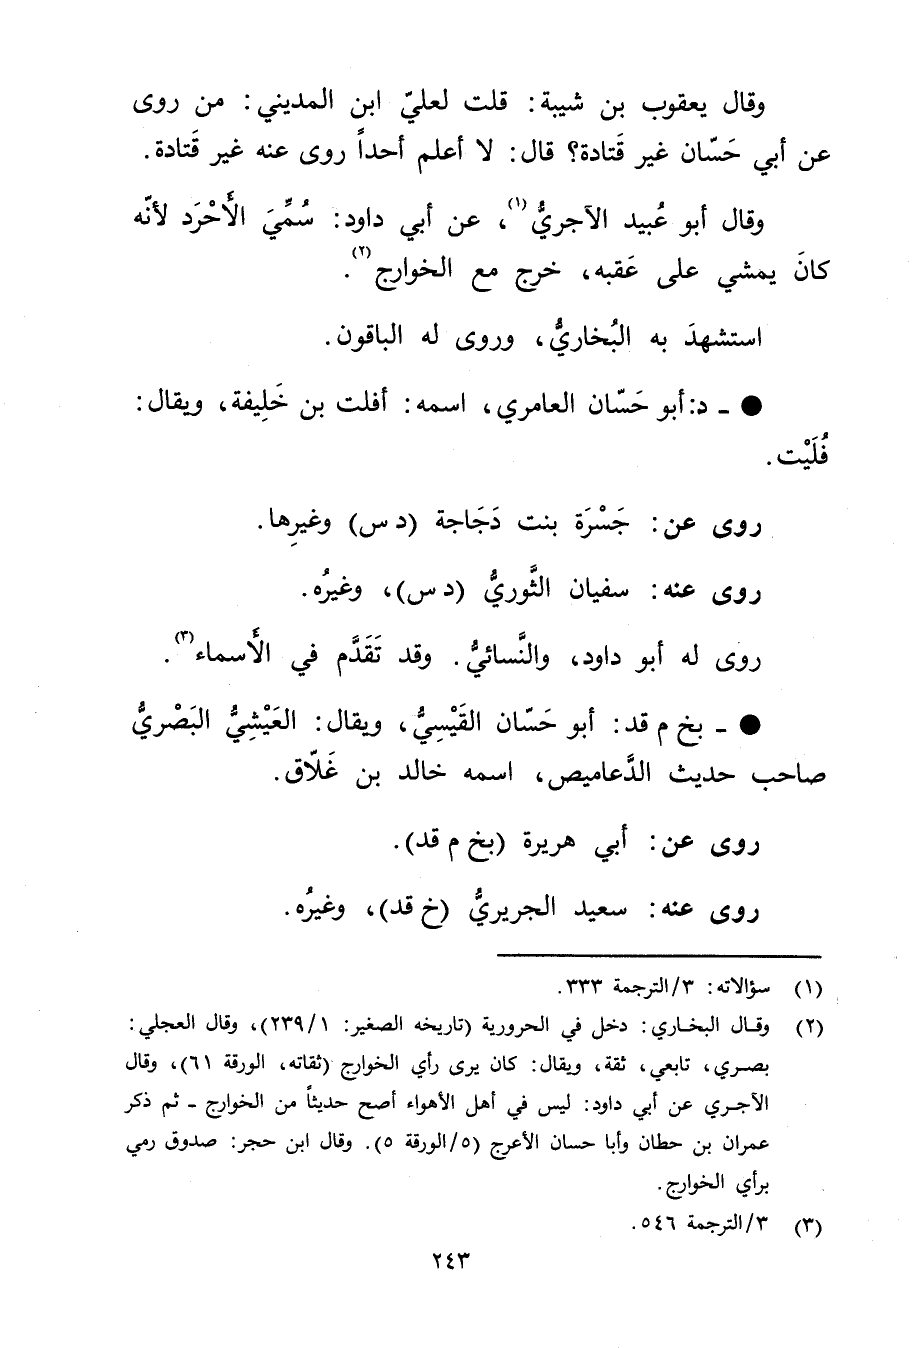 وقال يعقوب بن شيبة: قلت لعليّ ابن المديني: من روى
عن أبي حَسّان غير قَتادة؟ قال: لا أعلم أحداً روى عنه غير قَتادة.
وقال أبو عُبيد الآجريُّ(١)، عن أبي داود: سُمِّيَ الأَحْرَد لأنّه
كانَ يمشي على عَقبه، خرج مع الخوارج(٢).
استشهدَ به البُخاريُّ، وروى له الباقون.
● ـ د: أبو حَسّان العامري، اسمه: أفلت بن خَلِيفة، ويقال:
فُلَيْت.
روى عن: جَسْرَة بنت دَجَاجة (د س) وغيرِها.
روى عنه: سفيان الثَّوريُّ (د س)، وغيرُه.
روى له أبو داود، والنَّسائيُّ. وقد تَقَدَّم في الأَسماء(٣).
● ـ بخ م قد: أبو حَسّان القَيْسِيُّ، ويقال: العَيْشِيُّ البَصْريُّ
صاحب حديث الدَّعاميص، اسمه خالد بن غَلّاق.
روى عن: أبي هريرة (بخ م قد).
روى عنه: سعيد الجريريُّ (خ قد)، وغيرُه.
(١) سؤالاته: ٣/الترجمة ٣٣٣.
(٢) وقال البخاري: دخل في الحرورية (تاريخه الصغير: ٢٣٩/١)، وقال العجلي:
بصري، تابعي، ثقة، ويقال: كان يرى رأي الخوارج (ثقاته، الورقة ٦١)، وقال
الآجري عن أبي داود: ليس في أهل الأهواء أصح حديثاً من الخوارج ـ ثم ذكر
عمران بن حطان وأبا حسان الأعرج (٥/الورقة ٥). وقال ابن حجر: صدوق رمي
برأي الخوارج.
(٣) ٣/الترجمة ٥٤٦.
٢٤٣